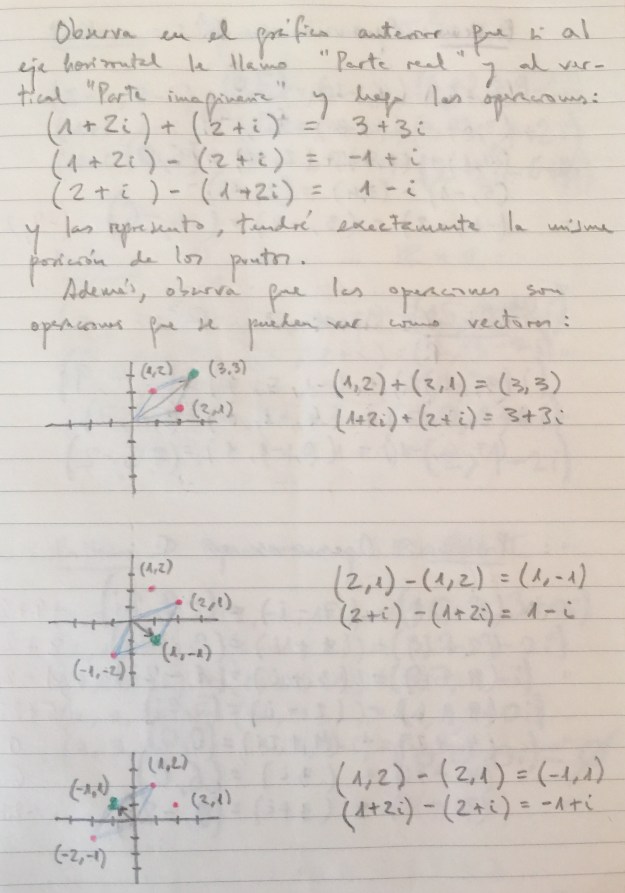 Observa en el gráfico anterior que si al
eje horizontal le llamo "Parte real" y al ver-
tical "Parte imaginaria" y hago las operaciones:
(1+2i)+(2+i) = 3+3i
(1+2i) - (2+i) = -1+i
(2+i) - (1+2i) = 1-i
y las represento, tendré exactamente la misma
posición de los puntos.
Además, observa que las operaciones son
operaciones que se pueden ver como vectores:
(1,2) (3,3)
(2,1)
(1,2)+(2,1) = (3,3)
(1+2i)+(2+i) = 3+3i
(1,2)
(2,1)
(1,-1)
(-1,-2)
(2,1)-(1,2) = (1,-1)
(2+i)-(1+2i) = 1-i
(1,2)
(-1,1)
(2,1)
(-2,-1)
(1,2)-(2,1) = (-1,1)
(1+2i)-(2+i) = -1+i